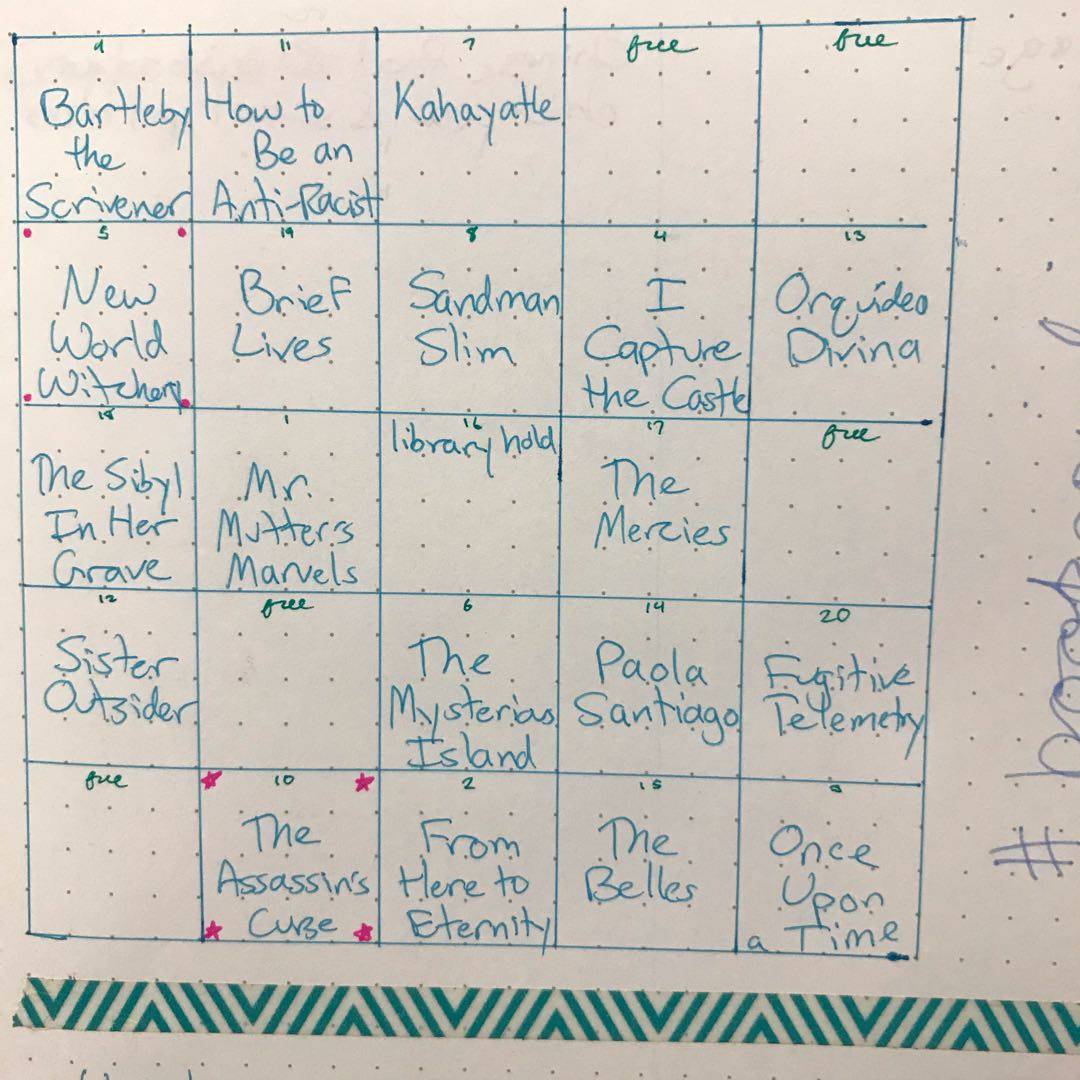 9
Bartleby
the
Scrivener
11
How to
Be an
Anti-Racist
7
Kahayatle
free
free
5
New
World
Witchery
19
Brief
Lives
8
Sandman
Slim
4
I
Capture
the Castle
13
Orquídea
Divina
18
The Sibyl
In Her
Grave
1
Mr.
Mütter's
Marvels
16
library hold
17
The
Mercies
free
12
Sister
Outsider
free
6
The
Mysterious
Island
14
Paola
Santiago
20
Fugitive
Telemetry
free
10
The
Assassin's
Curse
2
From
Here to
Eternity
15
The
Belles
3
Once
Upon
a Time
#